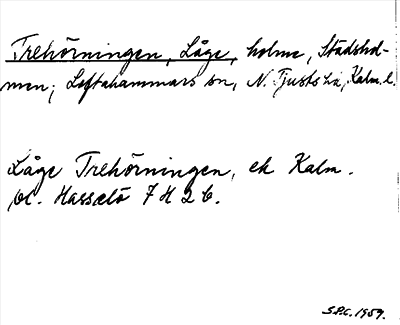 Trehörningen, Låge, holme, Stadshol-
men; Loftahammars sn, N. Tjusts hd, Kalm. l.
Låge Trehörningen, ek Kalm.
bl. Hasselö 7 H 2 b.
S.P.C. 1959.